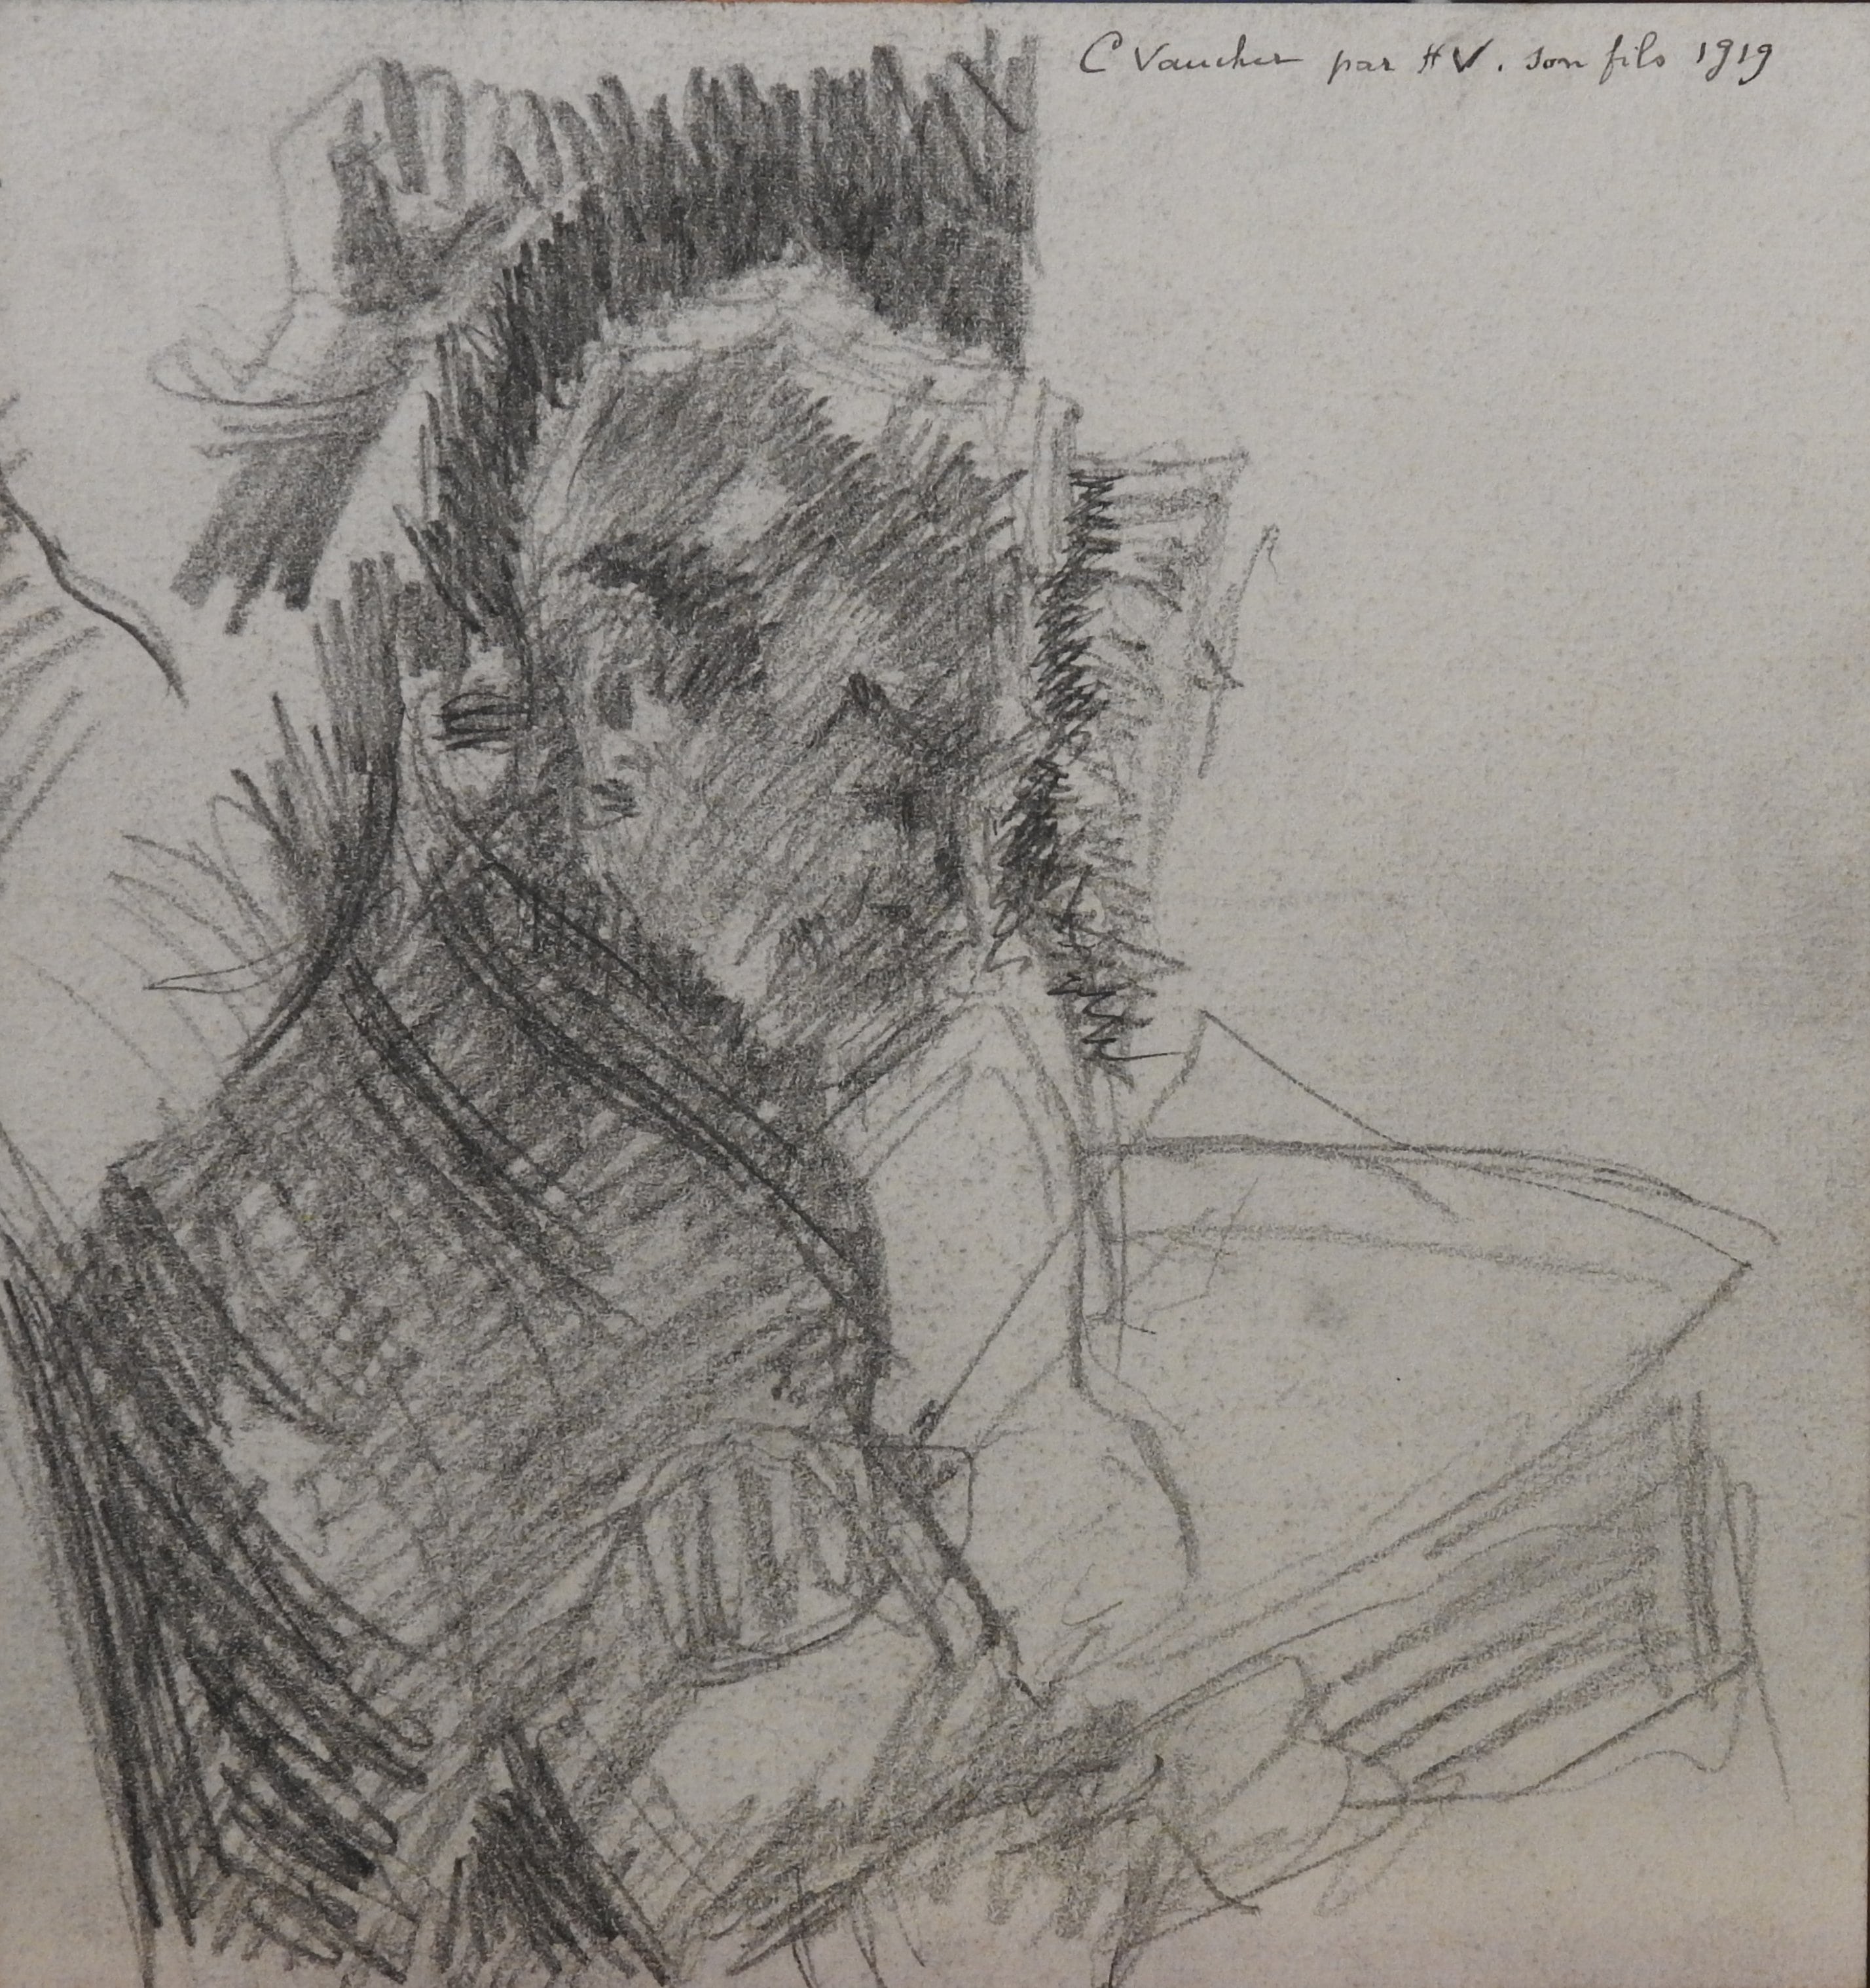 C Vaucher par H V. son fils 1919